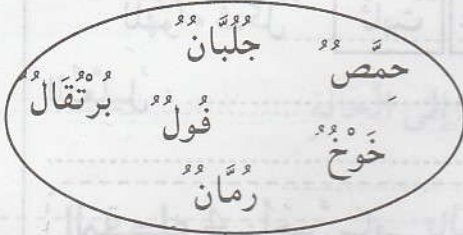 جُلُبَّانٌ
حِمَّصٌ
بُرْتُقَالٌ
فُولٌ
خَوْخٌ
رُمَّانٌ